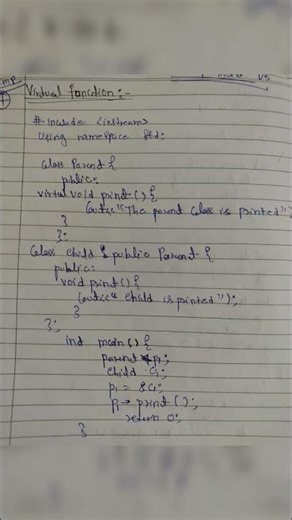 Imp
1
Virtual function:-
# include <iostream>
using namespace std;
Class Parent {
public:
virtual void print() {
Cout<<"The parent Class is printed"
}
};
Class Child : public Parent {
public:
void print() {
Cout<<" Child is printed");
}
};
int main() {
parent *p1;
child C1;
p1 = &C1;
p1 → print();
return 0;
}